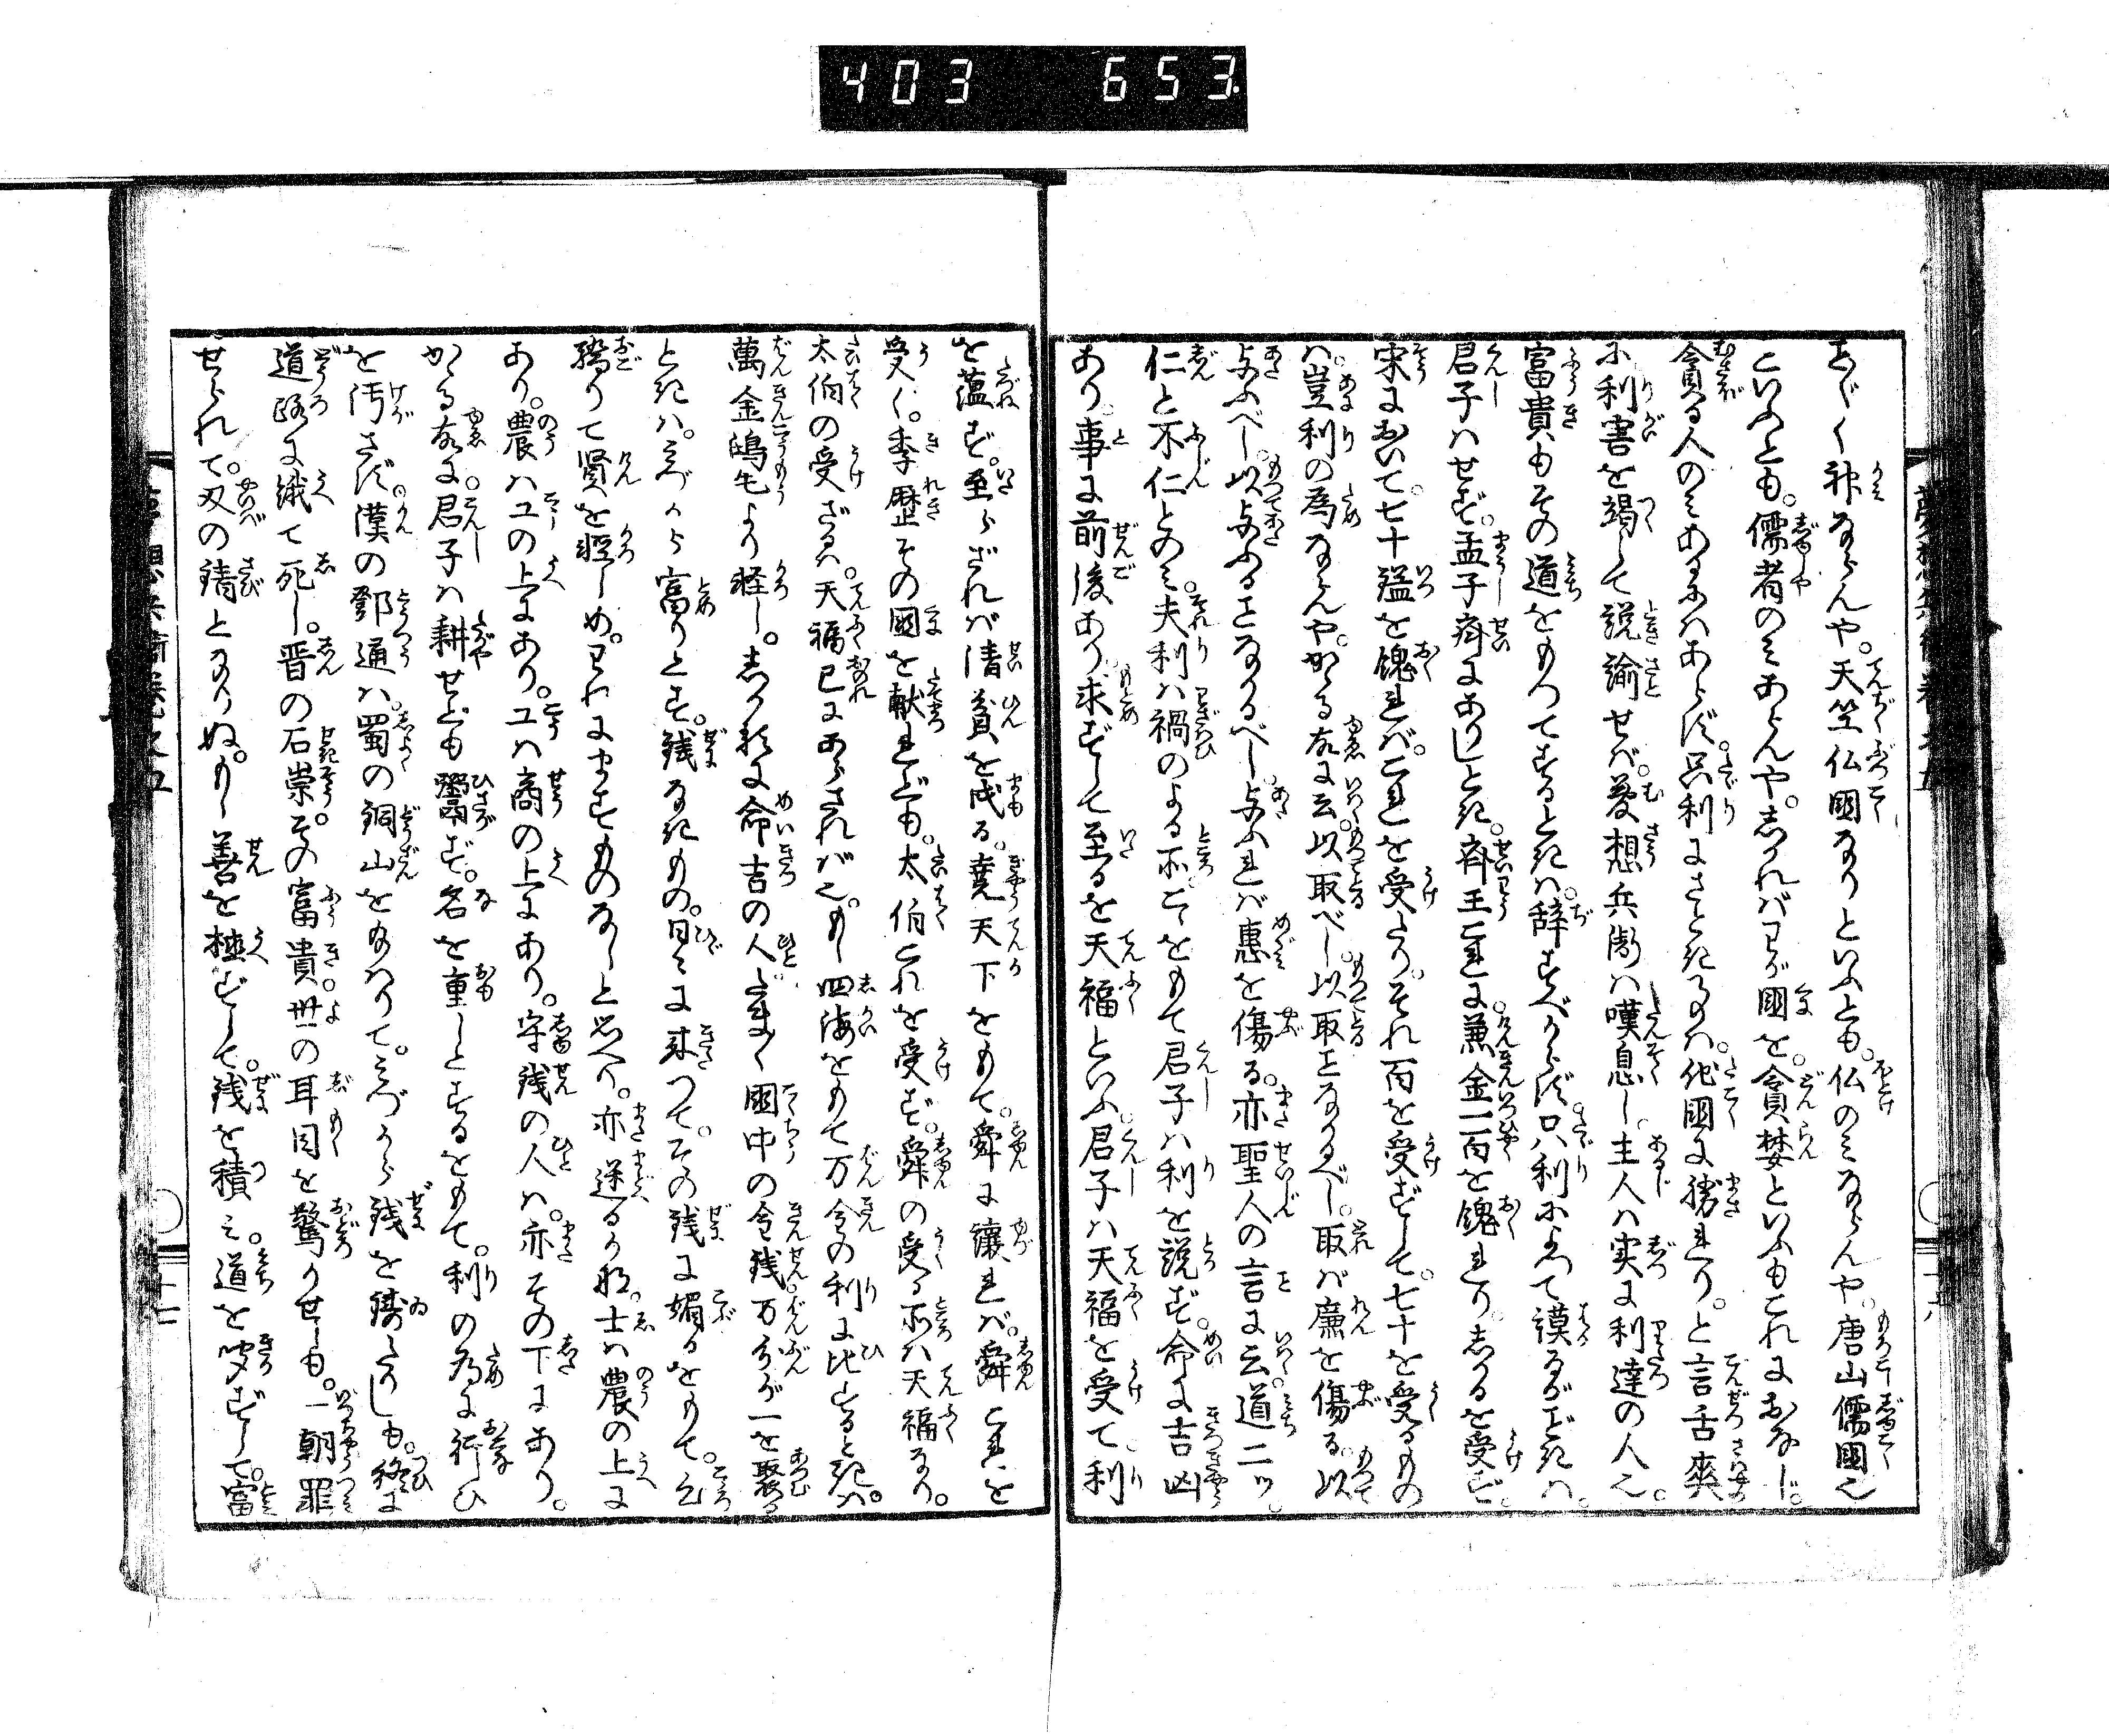 403 653
尽く神ならんや。天竺仏國なりといふとも。仏のみならんや。唐山儒國也
といふとも。儒者のみあらんや。しかればわが國を。貪婪といふもこれにおなじ。
貪る人のみあるにはあらず。只利にさときのは。他國に勝れり。と言舌爽
に利害を竭して説諭せば。夢想兵衛は嘆息し。主人は実に利達の人也。
富貴もその道をもつてするときは。辞すべからず。只利によつて謀るがごときは。
君子はせず。孟子斉にありしとき。斉王これに。兼金一百を餽れり。しかるを受ず。
宋において。七十鎰を餽れば。これを受たり。それ百を受ずして。七十を受るもの
は。豈利の為ならんや。かゝる故に云。以取べし。以取ことなかるべし。取ば廉を傷る。以
与ふべし。以与ふることなかるべし。与ふれば恵を傷る。亦聖人の言に云。道二ッ。
仁と不仁とのみ。夫利は禍のよる所。こゝをもて君子は利を説ず。命に吉凶
あり。事に前後あり。求ずして至るを天福といふ。君子は天福を受て。利
を薀ず。至らざれば清貧を戍る。堯天下をもて。舜に譲れば。舜これを
受く。季歴その國を献れども。太伯これを受ず。舜の受る所は天福なり。
太伯の受ざるは。天福已にあらざれば也。もし四海をもて万金の利に比するときは。
萬金鴻毛より軽し。しかるに命吉の人。よく國中の金銭。万分が一を聚る
ときは。みづから富りとす。銭なきもの。日々に来つて。その銭に媚るをもて。心
驕りて賢を軽しめ。われにますものなしと思へり。亦迷るかな。士は農の上に
あり。農は工の上にあり。工は商の上にあり。守銭の人は。亦その下にあり。
かゝる故に。君子は耕せども鬻ず。名を重しとするをもて。利の為に行ひ
を汚さず。漢の鄧通は。蜀の銅山をたまはりて。みづから銭を鋳たりしも。終に
道路に餓て死し。晋の石崇。その富貴。世の耳目を驚かせしも。一朝罪
せられて。刃の錆となりぬ。もし善を植ずして。銭を積み。道を聞ずして。富